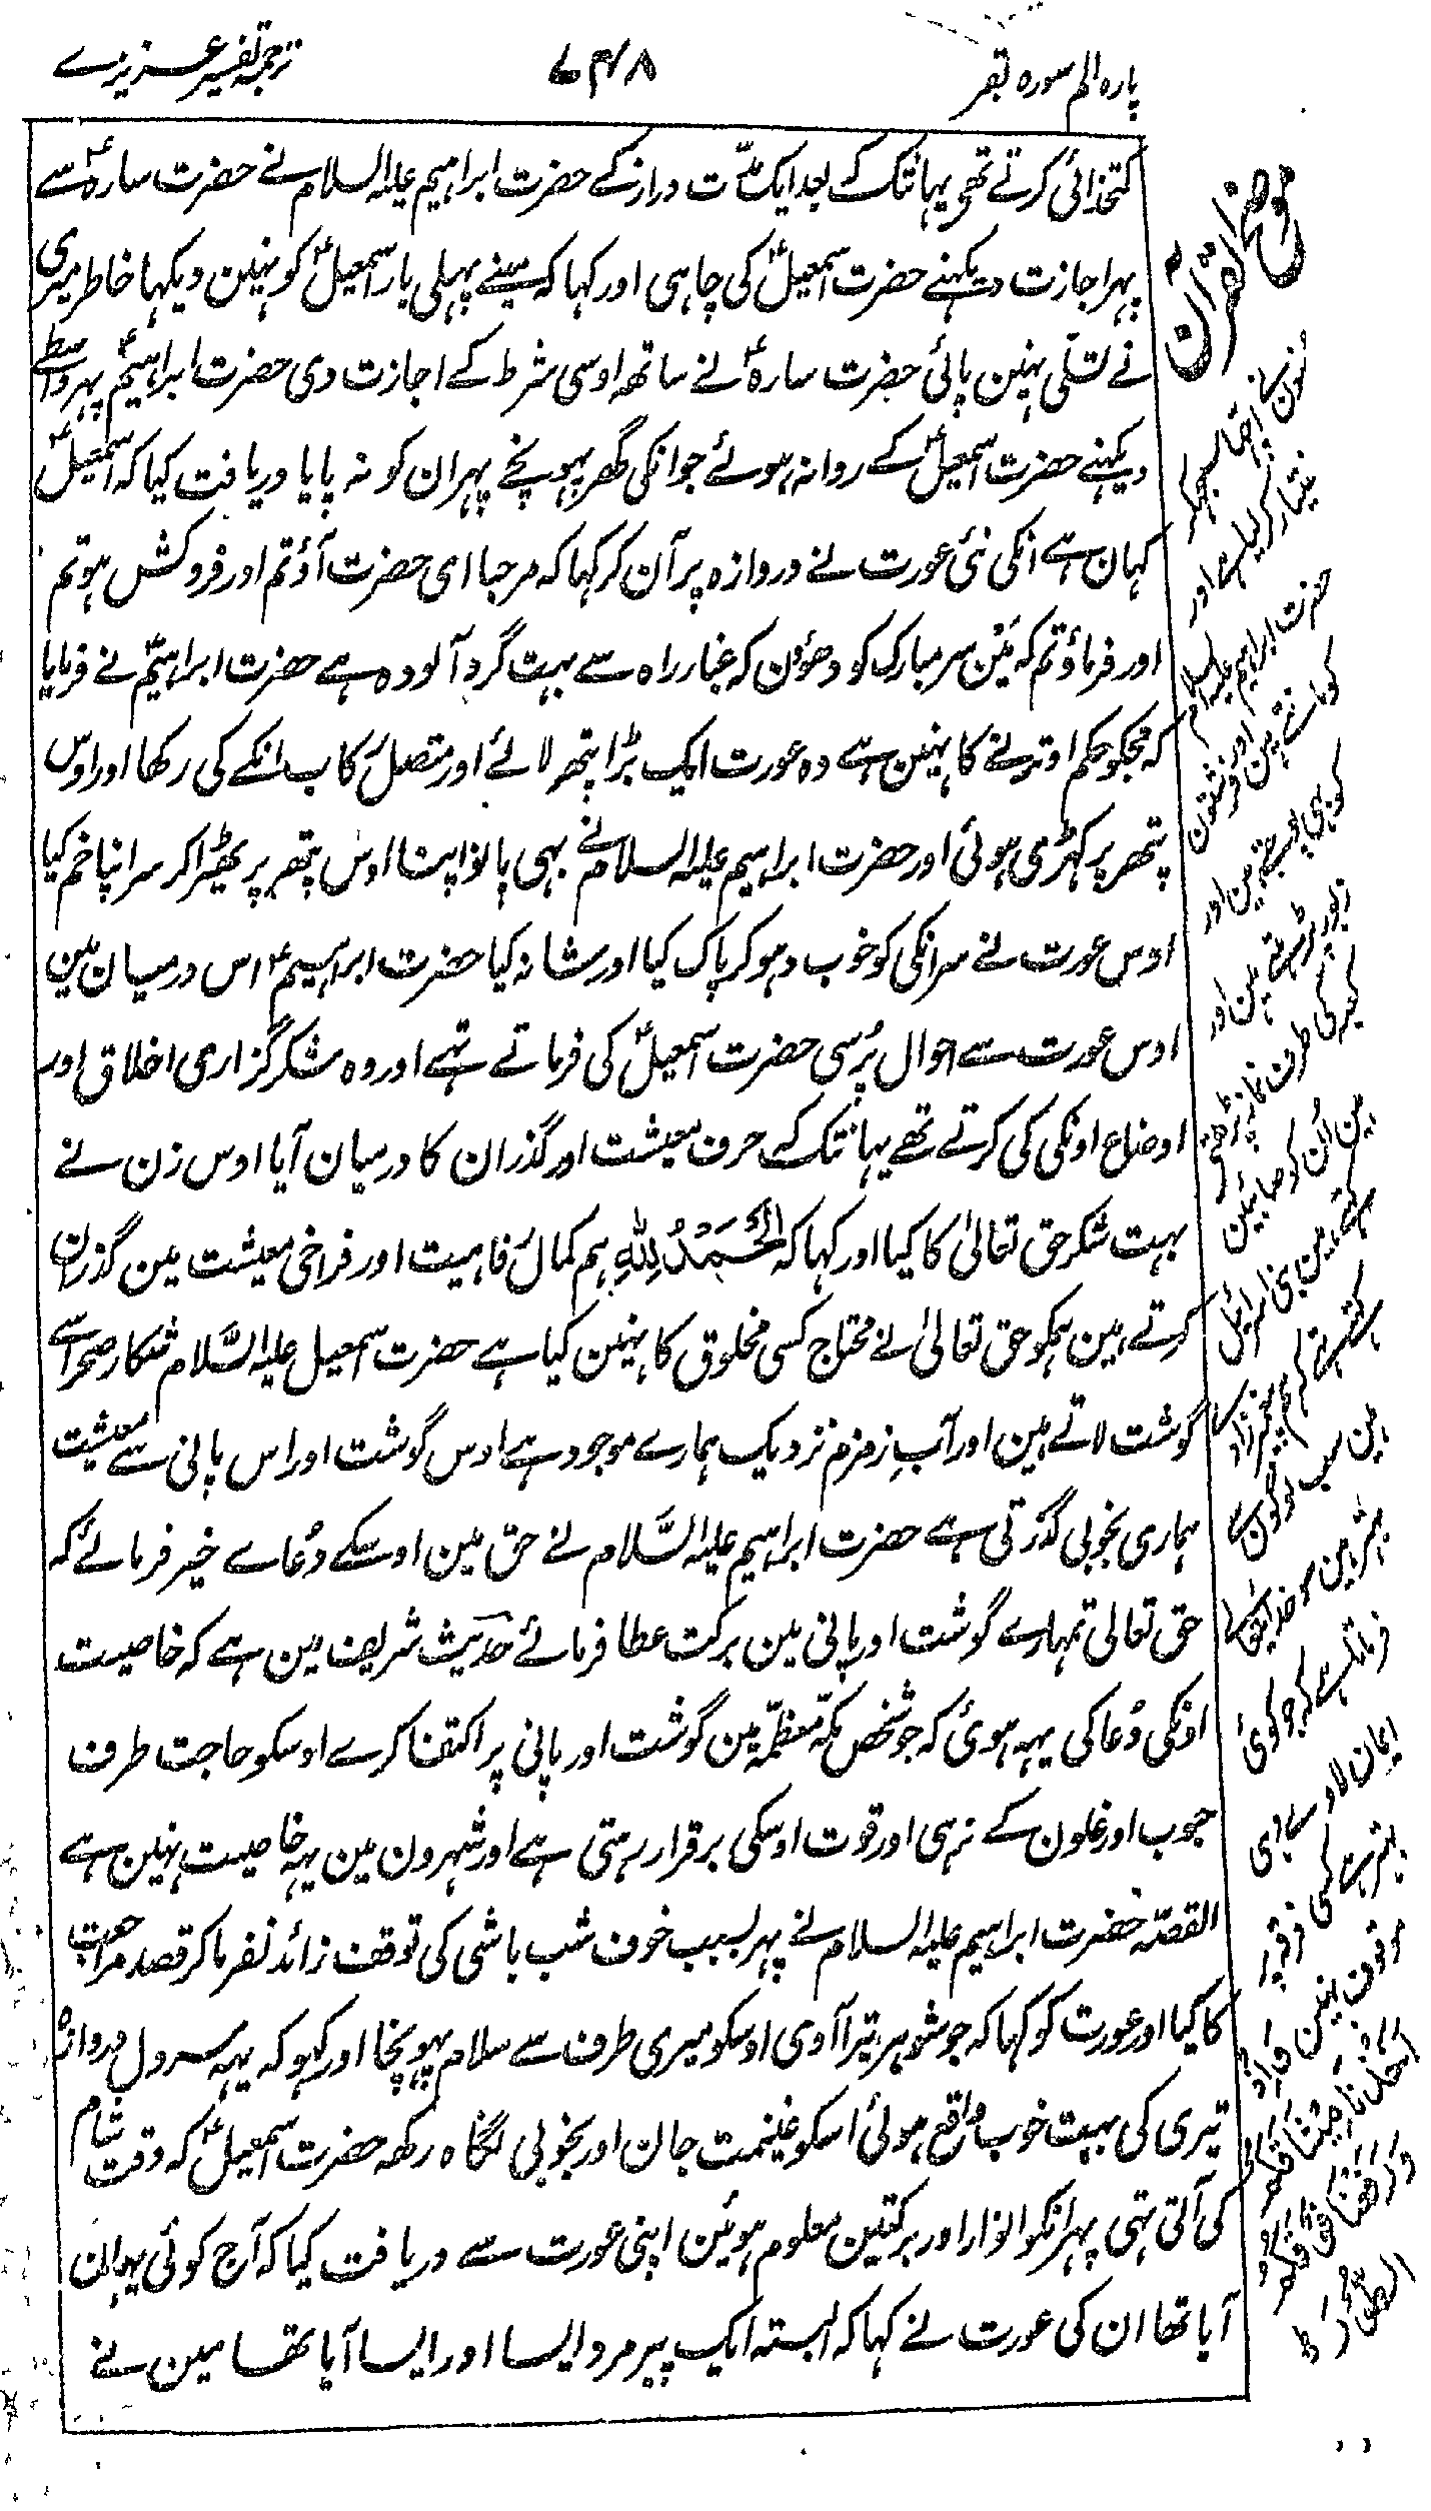 پارہ الم سورہ بقر
۷۴۸
ترجمہ تفسیر عزیزے
کتخدائی کرتے تھی یہانتک کہ بعد ایک مدّت دراز کے حضرت ابراہیم علیہ السلام نے حضرت سارہؑ سے
پہر اجازت دیکہنے حضرت اسمعیلؑ کی چاہی اور کہا کہ مینے پہلی بار اسمعیلؑ کو نہین دیکہا خاطر میری
نے تسلّی نہین پائی حضرت سارہؑ نے ساتھہ اوسی شرط کے اجازت دی حضرت ابراہیمؑ پہر واسطے
دیکہنے حضرت اسمعیلؑ کے روانہ ہوئے جو انکی گھر پہونچے پہر ان کو نہ پایا دریافت کیا کہ اسمعیلؑ
کہان ہے انکی نئی عورت نے دروازہ پر آن کر کہا کہ مرحبا ای حضرت آؤ تم اور فروکش ہو تم
اور فرماؤ تم کہ مَیْن سر مبارک کو دھوؤن کہ غبار راہ سے بہت گرد آلودہ ہے حضرت ابراہیمؑ نے فرمایا
کہ مجکو حکم اوترنے کا نہین ہے وہ عورت ایک بڑا پتھر لائے اور متصل رکاب انکے کی رکھا اور اوس
پتھر پر کھڑی ہوئی اور حضرت ابراہیم علیہ السلام نے بہی پانو اپنا اوس پتھر پر ٹھیرا کر سر اپنا خم کیا
اوس عورت نے سر انکی کو خوب دہو کر پاک کیا اور شانہ کیا حضرت ابراہیمؑ اس درمیان مین
اوس عورت سے احوال پُرسی حضرت اسمعیلؑ کی فرماتے تہے اور وہ شکر گزاری اخلاق اور
اوضاع اونکی کی کرتے تھے یہانتک کہ حرف معیشت اور گذران کا درمیان آیا اوس زن نے
بہت شکر حق تعالیٰ کا کیا اور کہا کہ الْحَمْدُ لِلّٰہِ ہم کمال رفاہیت اور فراخی معیشت مین گذران
کرتے ہین ہمکو حق تعالیٰ نے محتاج کسی مخلوق کا نہین کیا ہے حضرت اسمعیل علیہ السَّلام شکار صحرا سے
گوشت لاتے ہین اور آبِ زمزم نزدیک ہمارے موجود ہے اوس گوشت اور اس پانی سے معیشت
ہماری بخوبی گذرتی ہے حضرت ابراہیم علیہ السَّلام نے حق مین اوسکے دُعاے خیر فرمائے کہ
حق تعالی تمہارے گوشت اور پانی مین برکت عطا فرمائے حدیث شریف مین ہے کہ خاصیت
اونکی دُعا کی یہہ ہوئی کہ جو شخص مکّہ معظّمہ مین گوشت اور پانی پر اکتفا کرے اوسکو حاجت طرف
حبوب اور غلون کے نرہی اور قوت اوسکی برقرار رہتی ہے اور شہرون مین یہہ خاصیت نہین ہے
القصّہ حضرت ابراہیم علیہ السلام نے پہر بسبب خوف شب باشی کی توقف زائد نفرما کر قصد مراجعت
کا کیا اور عورت کو کہا کہ جو شوہر تیرا آوی اوسکو میری طرف سے سلام پہونچا اور کہو کہ یہہ سردل دروازہ
تیری کی بہت خوب واقع ہوئی اسکو غنیمت جان اور بخوبی نگاہ رکھہ حضرت اسمعیلؑ کہ وقت شام
کی آئی تہی پہر انکو انوار اور برکتین معلوم ہوئین اپنی عورت سے دریافت کیا کہ آج کوئی یہان
آیا تھا ان کی عورت نے کہا کہ البتہ ایک پیر مرد ایسا اور ایسا آیا تھا مین نے
موضح القرآن
حضرت ابراہیم علیہ السلام
کو مانتے ہین اور فرشتون
زبور پڑہتے ہین اور
کعبہ کی طرف نماز پڑہتے
فرماتا ہے کہ جو کوئی
ایمان لاوے
بہتر ہے کسی فرقہ پر
موقوف نہین